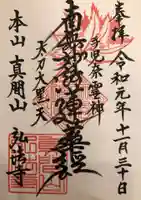 奉拝 令和元年十一月三十日
手児奈霊神
南無妙法蓮華経
大刀大黒天
本山 真間山 弘法寺